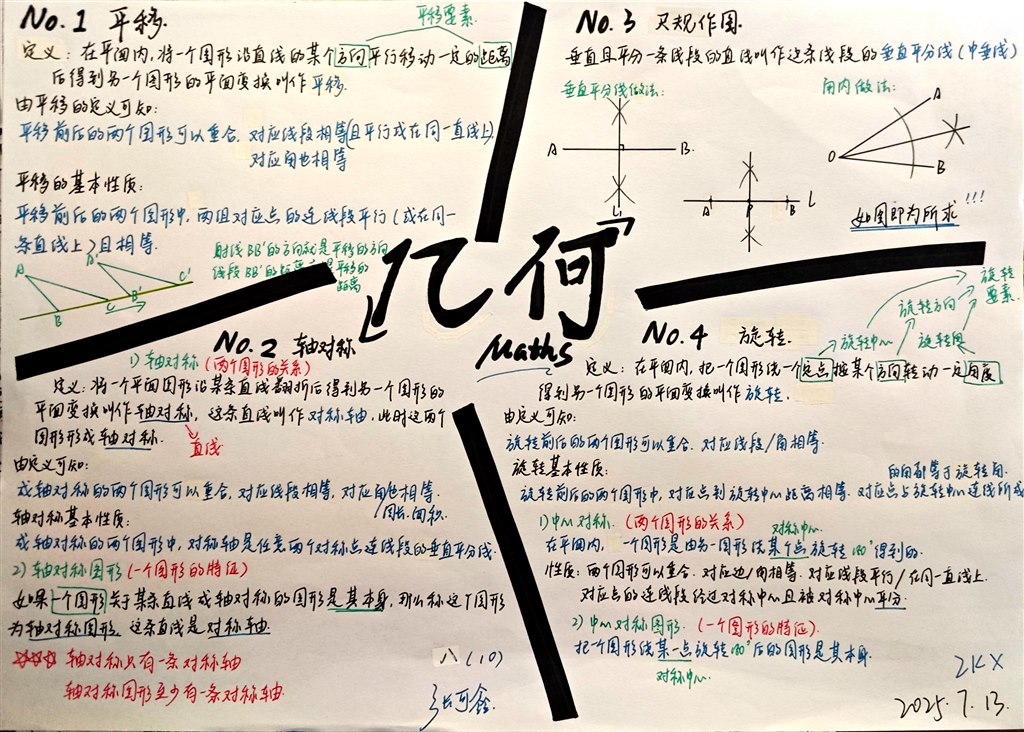 No.1 平移.
平移要素
定义：在平面内，将一个图形沿直线的某个方向平行移动一定的距离
后得到另一个图形的平面变换叫作平移.
由平移的定义可知：
平移前后的两个图形可以重合. 对应线段相等(且平行或在同一直线上)
对应角也相等
平移的基本性质：
平移前后的两个图形中，两组对应点的连线段平行(或在同一
条直线上)且相等.
射线BB'的方向就是平移的方向
线段BB'的距离 平移的
距离
A
A'
B
B'
C
C'
No.2 轴对称
1) 轴对称 (两个图形的关系)
定义：将一个平面图形沿某条直线翻折后得到另一个图形的
平面变换叫作轴对称，这条直线叫作对称轴，此时这两个
图形形成轴对称.
直线
由定义可知：
成轴对称的两个图形可以重合，对应线段相等，对应角也相等.
周长.面积.
轴对称基本性质：
成轴对称的两个图形中，对称轴是任意两个对称点连线段的垂直平分线.
2) 轴对称图形 (一个图形的特征)
如果一个图形关于某条直线成轴对称的图形是其本身，那么称这个图形
为轴对称图形，这条直线是对称轴.
轴对称只有一条对称轴
轴对称图形至少有一条对称轴.
八(10)
几何
Maths
No.3 尺规作图.
垂直且平分一条线段的直线叫作这条线段的垂直平分线(中垂线)
垂直平分线做法：
角内做法：
A
B.
L
A
P
B
L
O
A
B
如图即为所求!!!
No.4 旋转.
旋转要素
旋转中心
旋转方向
旋转角
定义：在平面内，把一个图形绕一个定点按某个方向转动一定角度
得到另一个图形的平面变换叫作旋转.
由定义可知：
旋转前后的两个图形可以重合. 对应线段/角相等.
旋转基本性质：
旋转前后的两个图形中，对应点到旋转中心距离相等. 对应点与旋转中心连线所成
的角都等于旋转角.
1) 中心对称. (两个图形的关系)
对称中心.
在平面内，一个图形是由另一图形绕某个点旋转180°得到的.
性质：两个图形可以重合. 对应边/角相等. 对应线段平行/在同一直线上.
对应点的连线段经过对称中心且被对称中心平分.
2) 中心对称图形. (一个图形的特征).
把一个图形绕某一点旋转180°后的图形是其本身.
对称中心.
ZKX
2025.7.13.